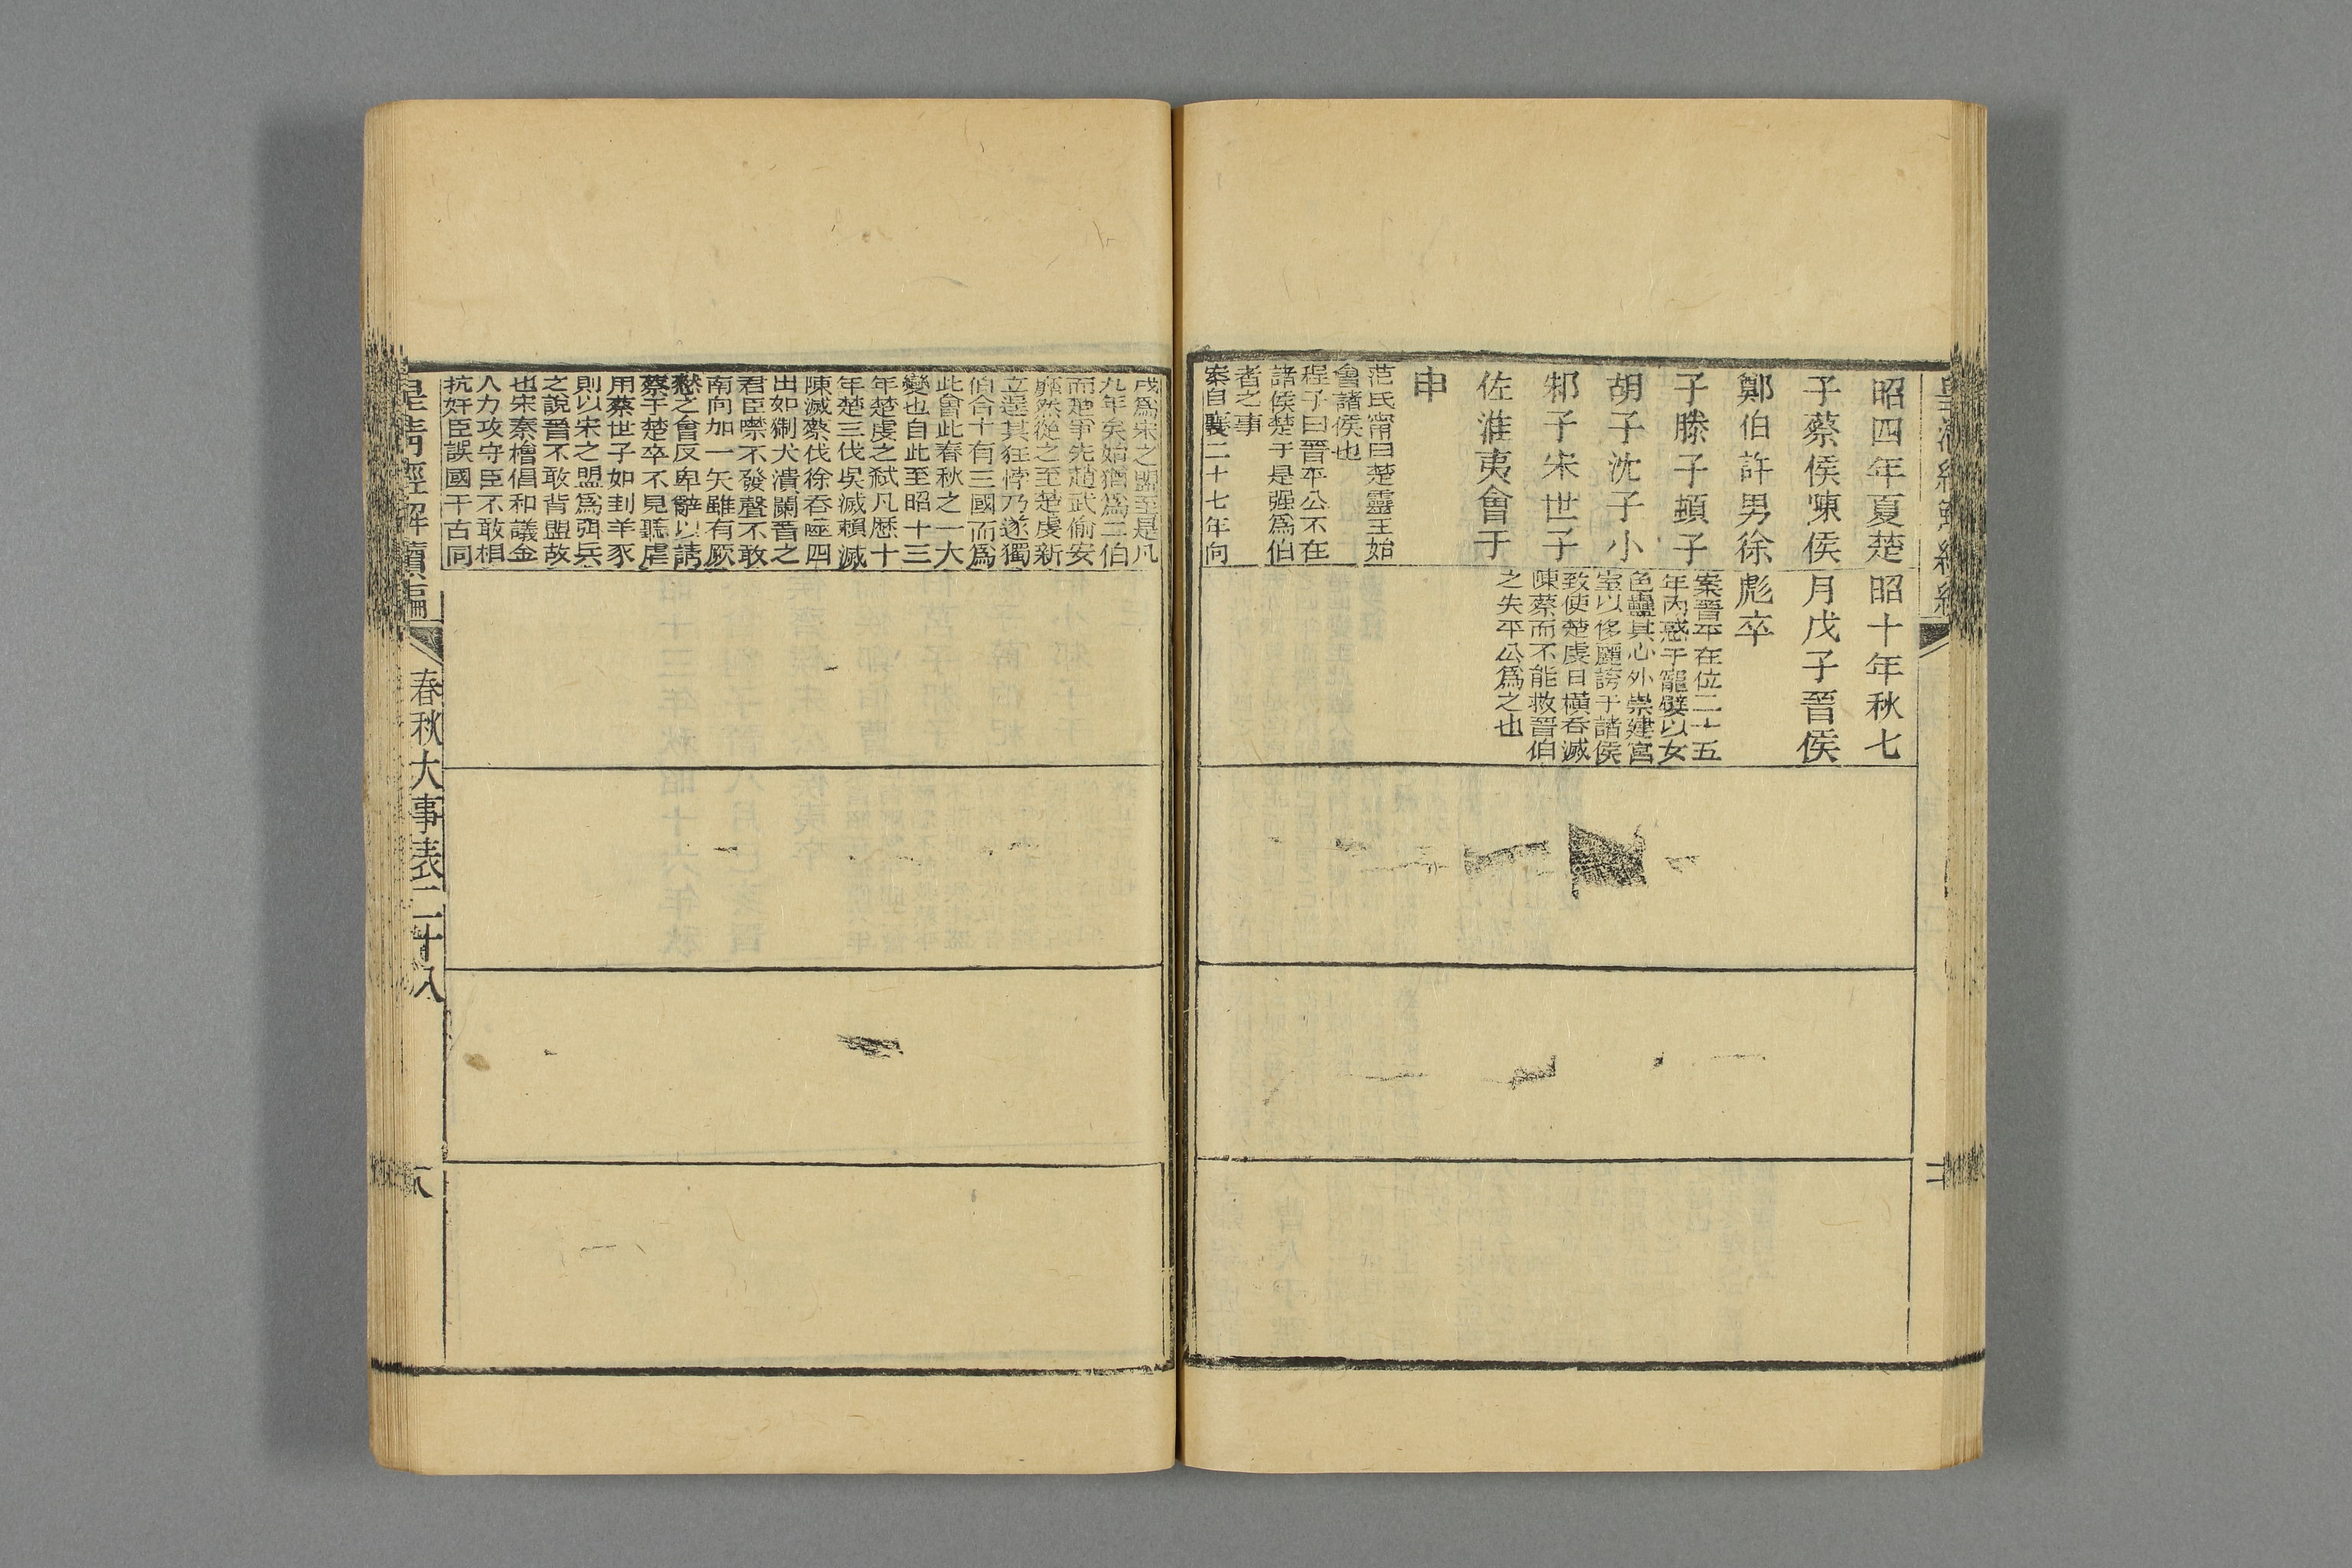 昭四年夏楚
子蔡侯陳侯
鄭伯許男徐
子滕子頓子
胡子沈子小
邾子宋世子
佐淮夷會于
申
范氏甯曰楚靈王始
會諸侯也
程子曰晉平公不在
諸侯楚于是强為伯
者之事
案自襄二十七年向
昭十年秋七
月戊子晉侯
彪卒
案晉平在位二十五
年內惑于寵嬖以女
色蠱其心外崇建宮
室以侈麗誇于諸侯
致使楚虔日橫吞滅
陳蔡而不能救晉伯
之失平公爲之也
戌爲宋之盟至是凡
九年矣始猶爲二伯
而楚爭先趙武偷安
靡然從之至楚虔新
立逞其狂悖乃遂獨
伯合十有三國而爲
此會此春秋之一大
變也自此至昭十三
年楚虔之弒凡歷十
年楚三伐吳滅賴滅
陳滅蔡伐徐吞噬四
出如猘犬潰闌晉之
君臣噤不發聲不敢
南向加一矢雖有厥
憖之會反卑辭以請
蔡于楚卒不見聽虐
用蔡世子如刲羊豕
則以宋之盟爲弭兵
之說晉不敢背盟故
也宋秦檜倡和議金
人力攻守臣不敢相
抗奸臣誤國千古同
皇淸經解續編
春秋大事表二十八
八